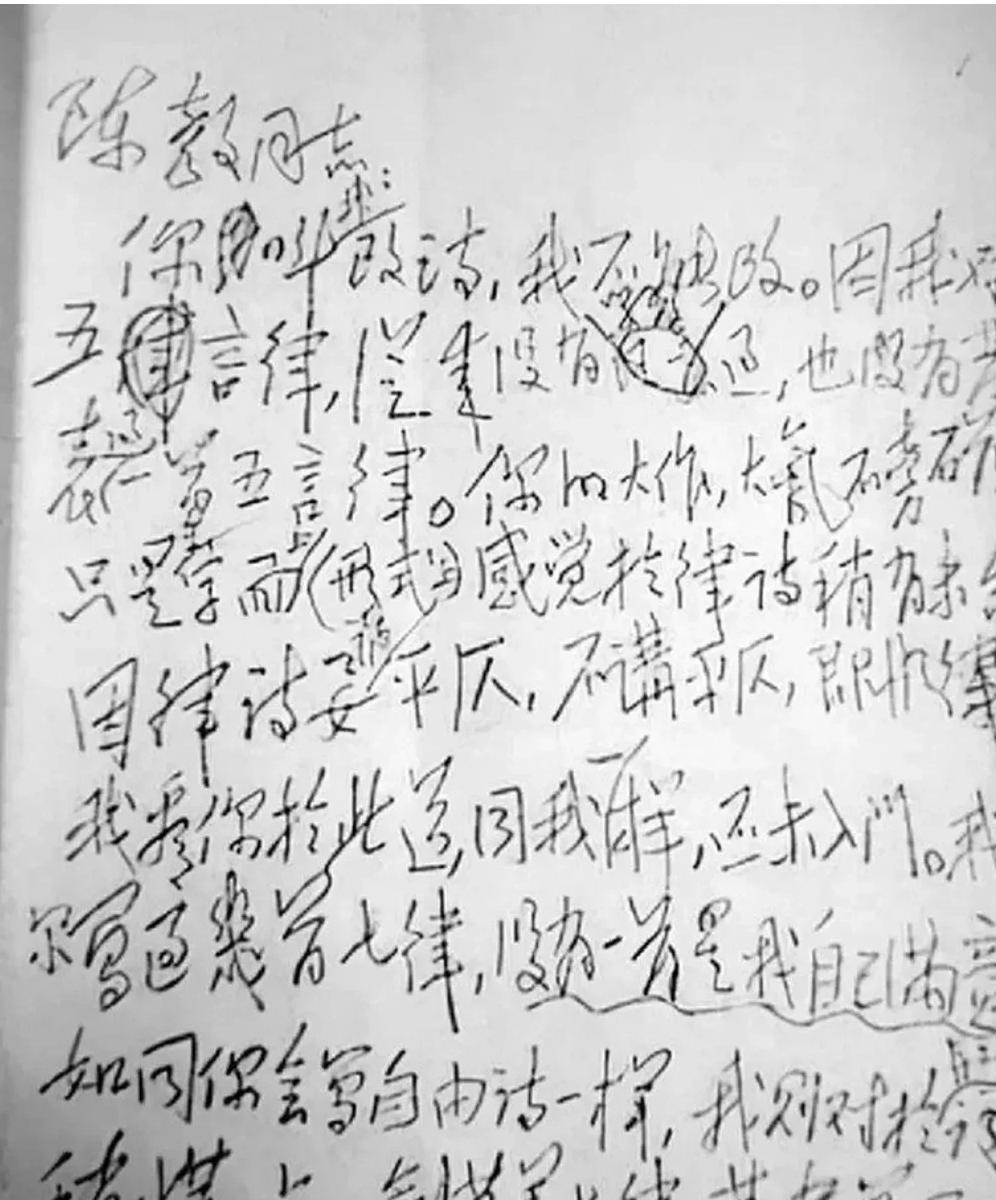 陈毅同志:
你叫我改诗,我不能改。因我对
五言律,從来没有学习过,也没有发
表过一首五言律。你的大作,大氣磅礴
只是在字面上(形式上)感觉於律诗稍有未合
因律诗要讲平仄,不講平仄,即非律
我看你於此道,同我一样,还未入門。我
尔写过幾首七律,没有一首是我自己满意
如同你会写自由诗一样,我则对於